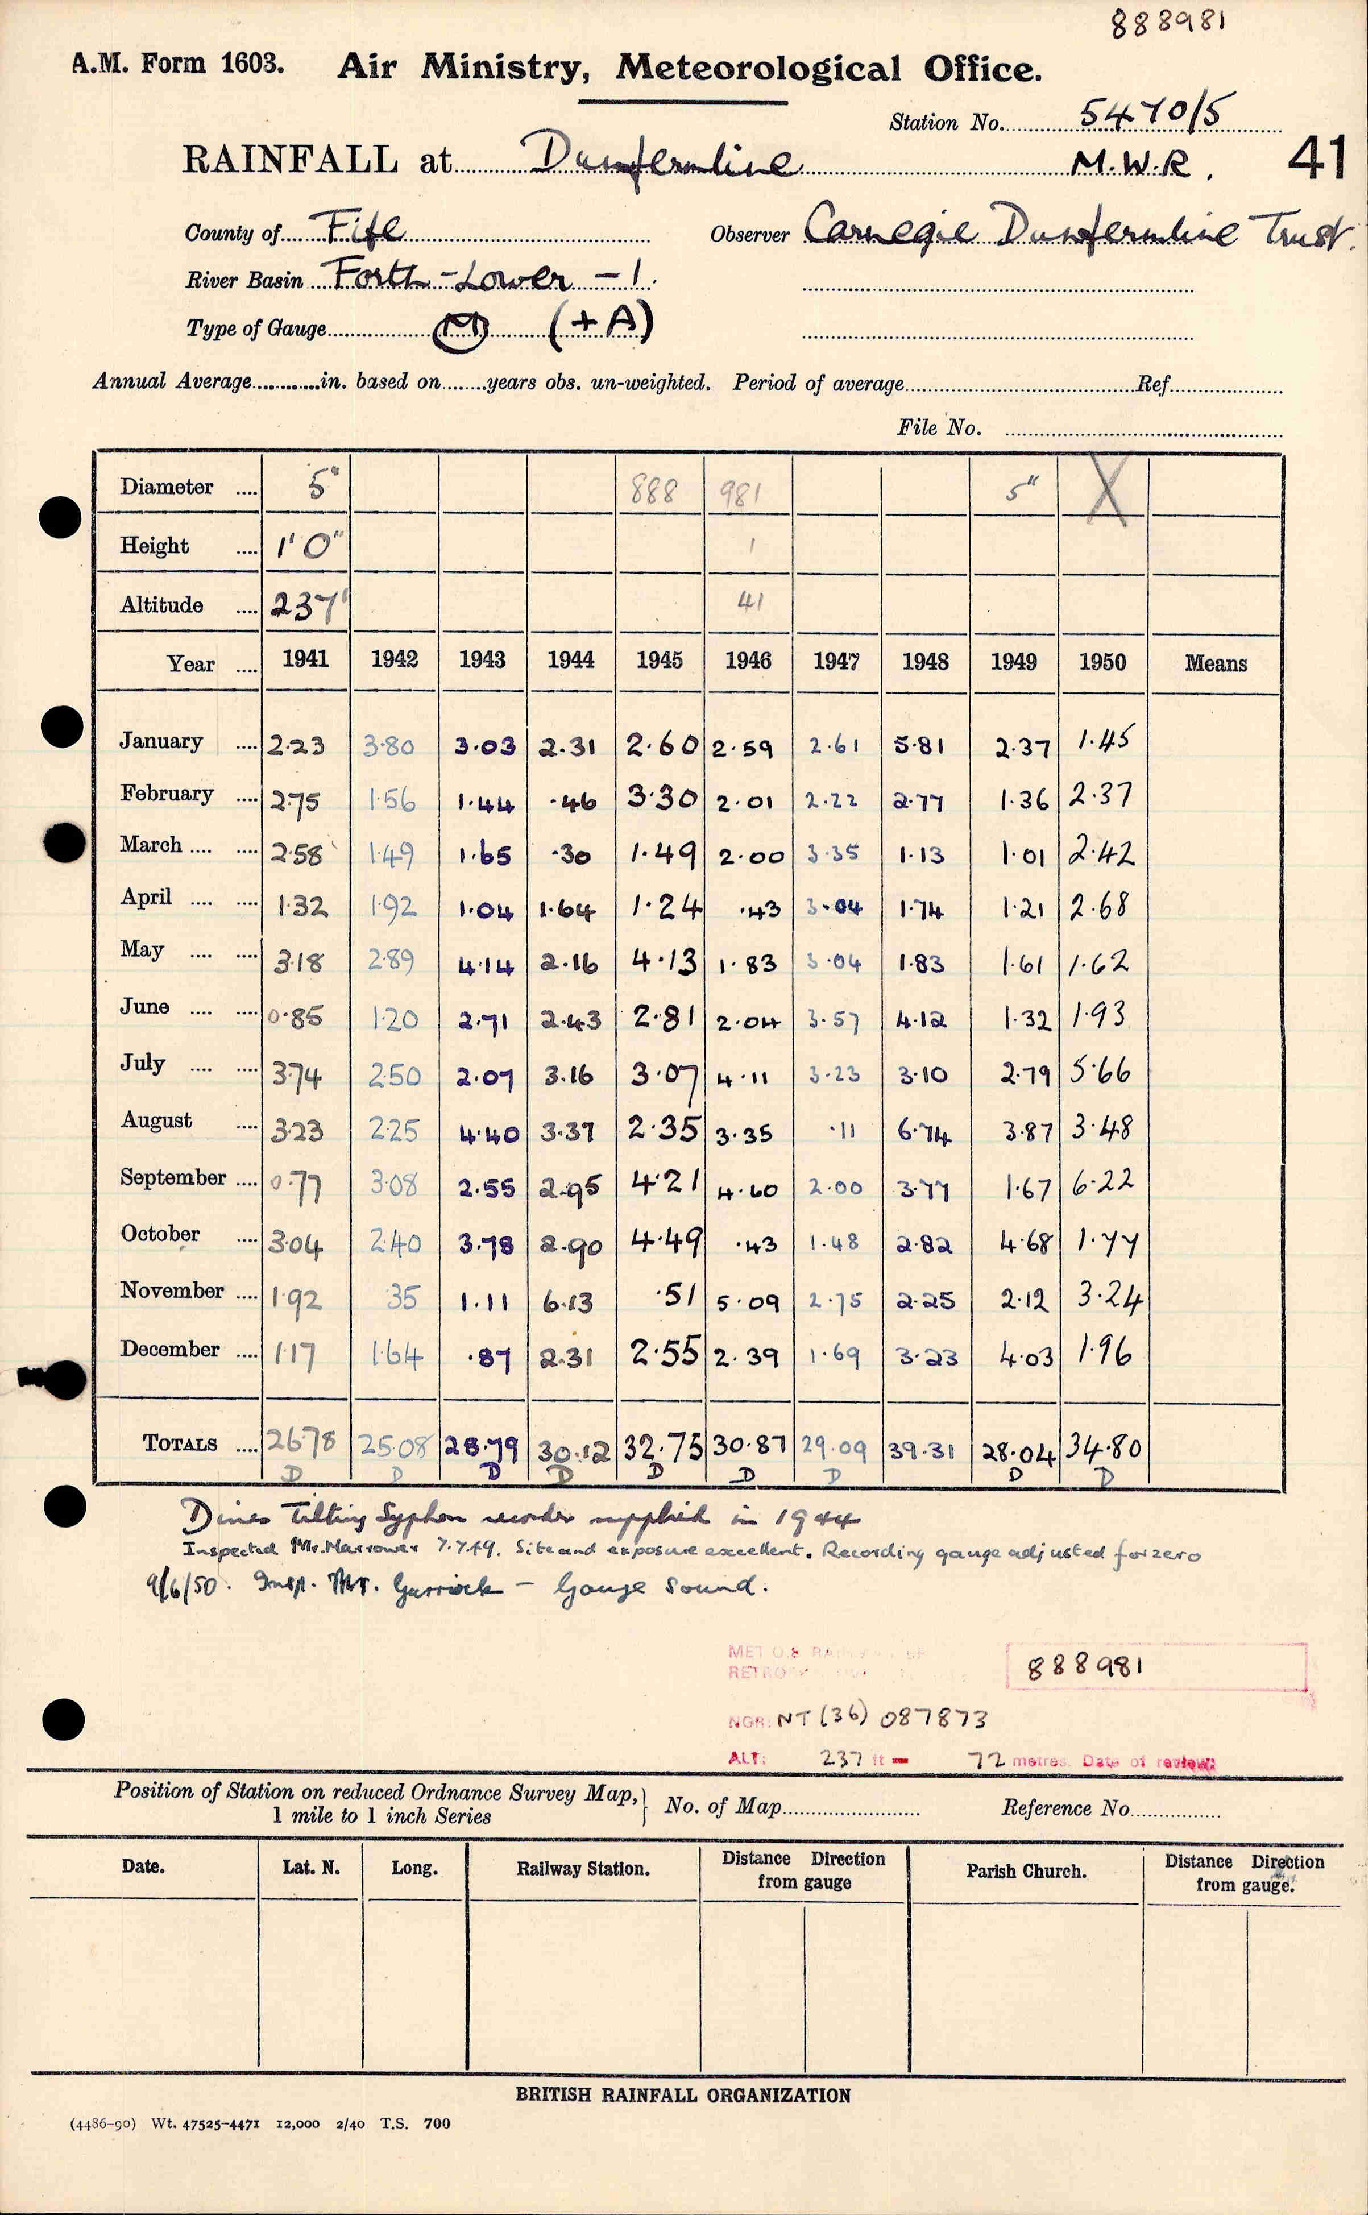 888981
A.M. Form 1603. Air Ministry, Meteorological Office.
Station No. 5470/5
RAINFALL at Dunfermline M.W.R. 41
County of Fife Observer Carnegie Dunfermline Trust.
River Basin Forth - Lower - 1.
Type of Gauge M (+A)
Annual Average in. based on years obs. un-weighted. Period of average Ref.
File No.
Diameter 5" 888 981 5" X
Height 1'0" 1
Altitude 237' 41
Year 1941 1942 1943 1944 1945 1946 1947 1948 1949 1950 Means
January 2.23 3.80 3.03 2.31 2.60 2.59 2.61 5.81 2.37 1.45
February 2.75 1.56 1.44 .46 3.30 2.01 2.22 2.77 1.36 2.37
March 2.58 1.49 1.65 .30 1.49 2.00 3.35 1.13 1.01 2.42
April 1.32 1.92 1.04 1.64 1.24 .43 3.04 1.74 1.21 2.68
May 3.18 2.89 4.14 2.16 4.13 1.83 3.04 1.83 1.61 1.62
June 0.85 1.20 2.71 2.43 2.81 2.04 3.57 4.12 1.32 1.93
July 3.74 2.50 2.07 3.16 3.07 4.11 3.23 3.10 2.79 5.66
August 3.23 2.25 4.40 3.37 2.35 3.35 .11 6.74 3.87 3.48
September 0.77 3.08 2.55 2.95 4.21 4.60 2.00 3.77 1.67 6.22
October 3.04 2.40 3.78 2.90 4.49 .43 1.48 2.82 4.68 1.77
November 1.92 35 1.11 6.13 .51 5.09 2.75 2.25 2.12 3.24
December 1.17 1.64 .87 2.31 2.55 2.39 1.69 3.23 4.03 1.96
TOTALS 26.78 25.08 28.79 30.12 32.75 30.87 29.09 39.31 28.04 34.80
D D D D D D D D D
Dines Tilting Syphon recorder supplied in 1944
Inspected Mr. Marrower 7.7.49. Site and exposure excellent. Recording gauge adjusted for zero
9/6/50. Insp. Mr. Garrick - Gauge sound.
MET O.8
888981
NGR: NT (36) 087873
ALT: 237 ft = 72 metres. Date of review:
Position of Station on reduced Ordnance Survey Map, 1 mile to 1 inch Series No. of Map Reference No.
Date. Lat. N. Long. Railway Station. Distance Direction from gauge Parish Church. Distance Direction from gauge.
BRITISH RAINFALL ORGANIZATION
(4486-90) Wt. 47525-4471 12,000 2/40 T.S. 700